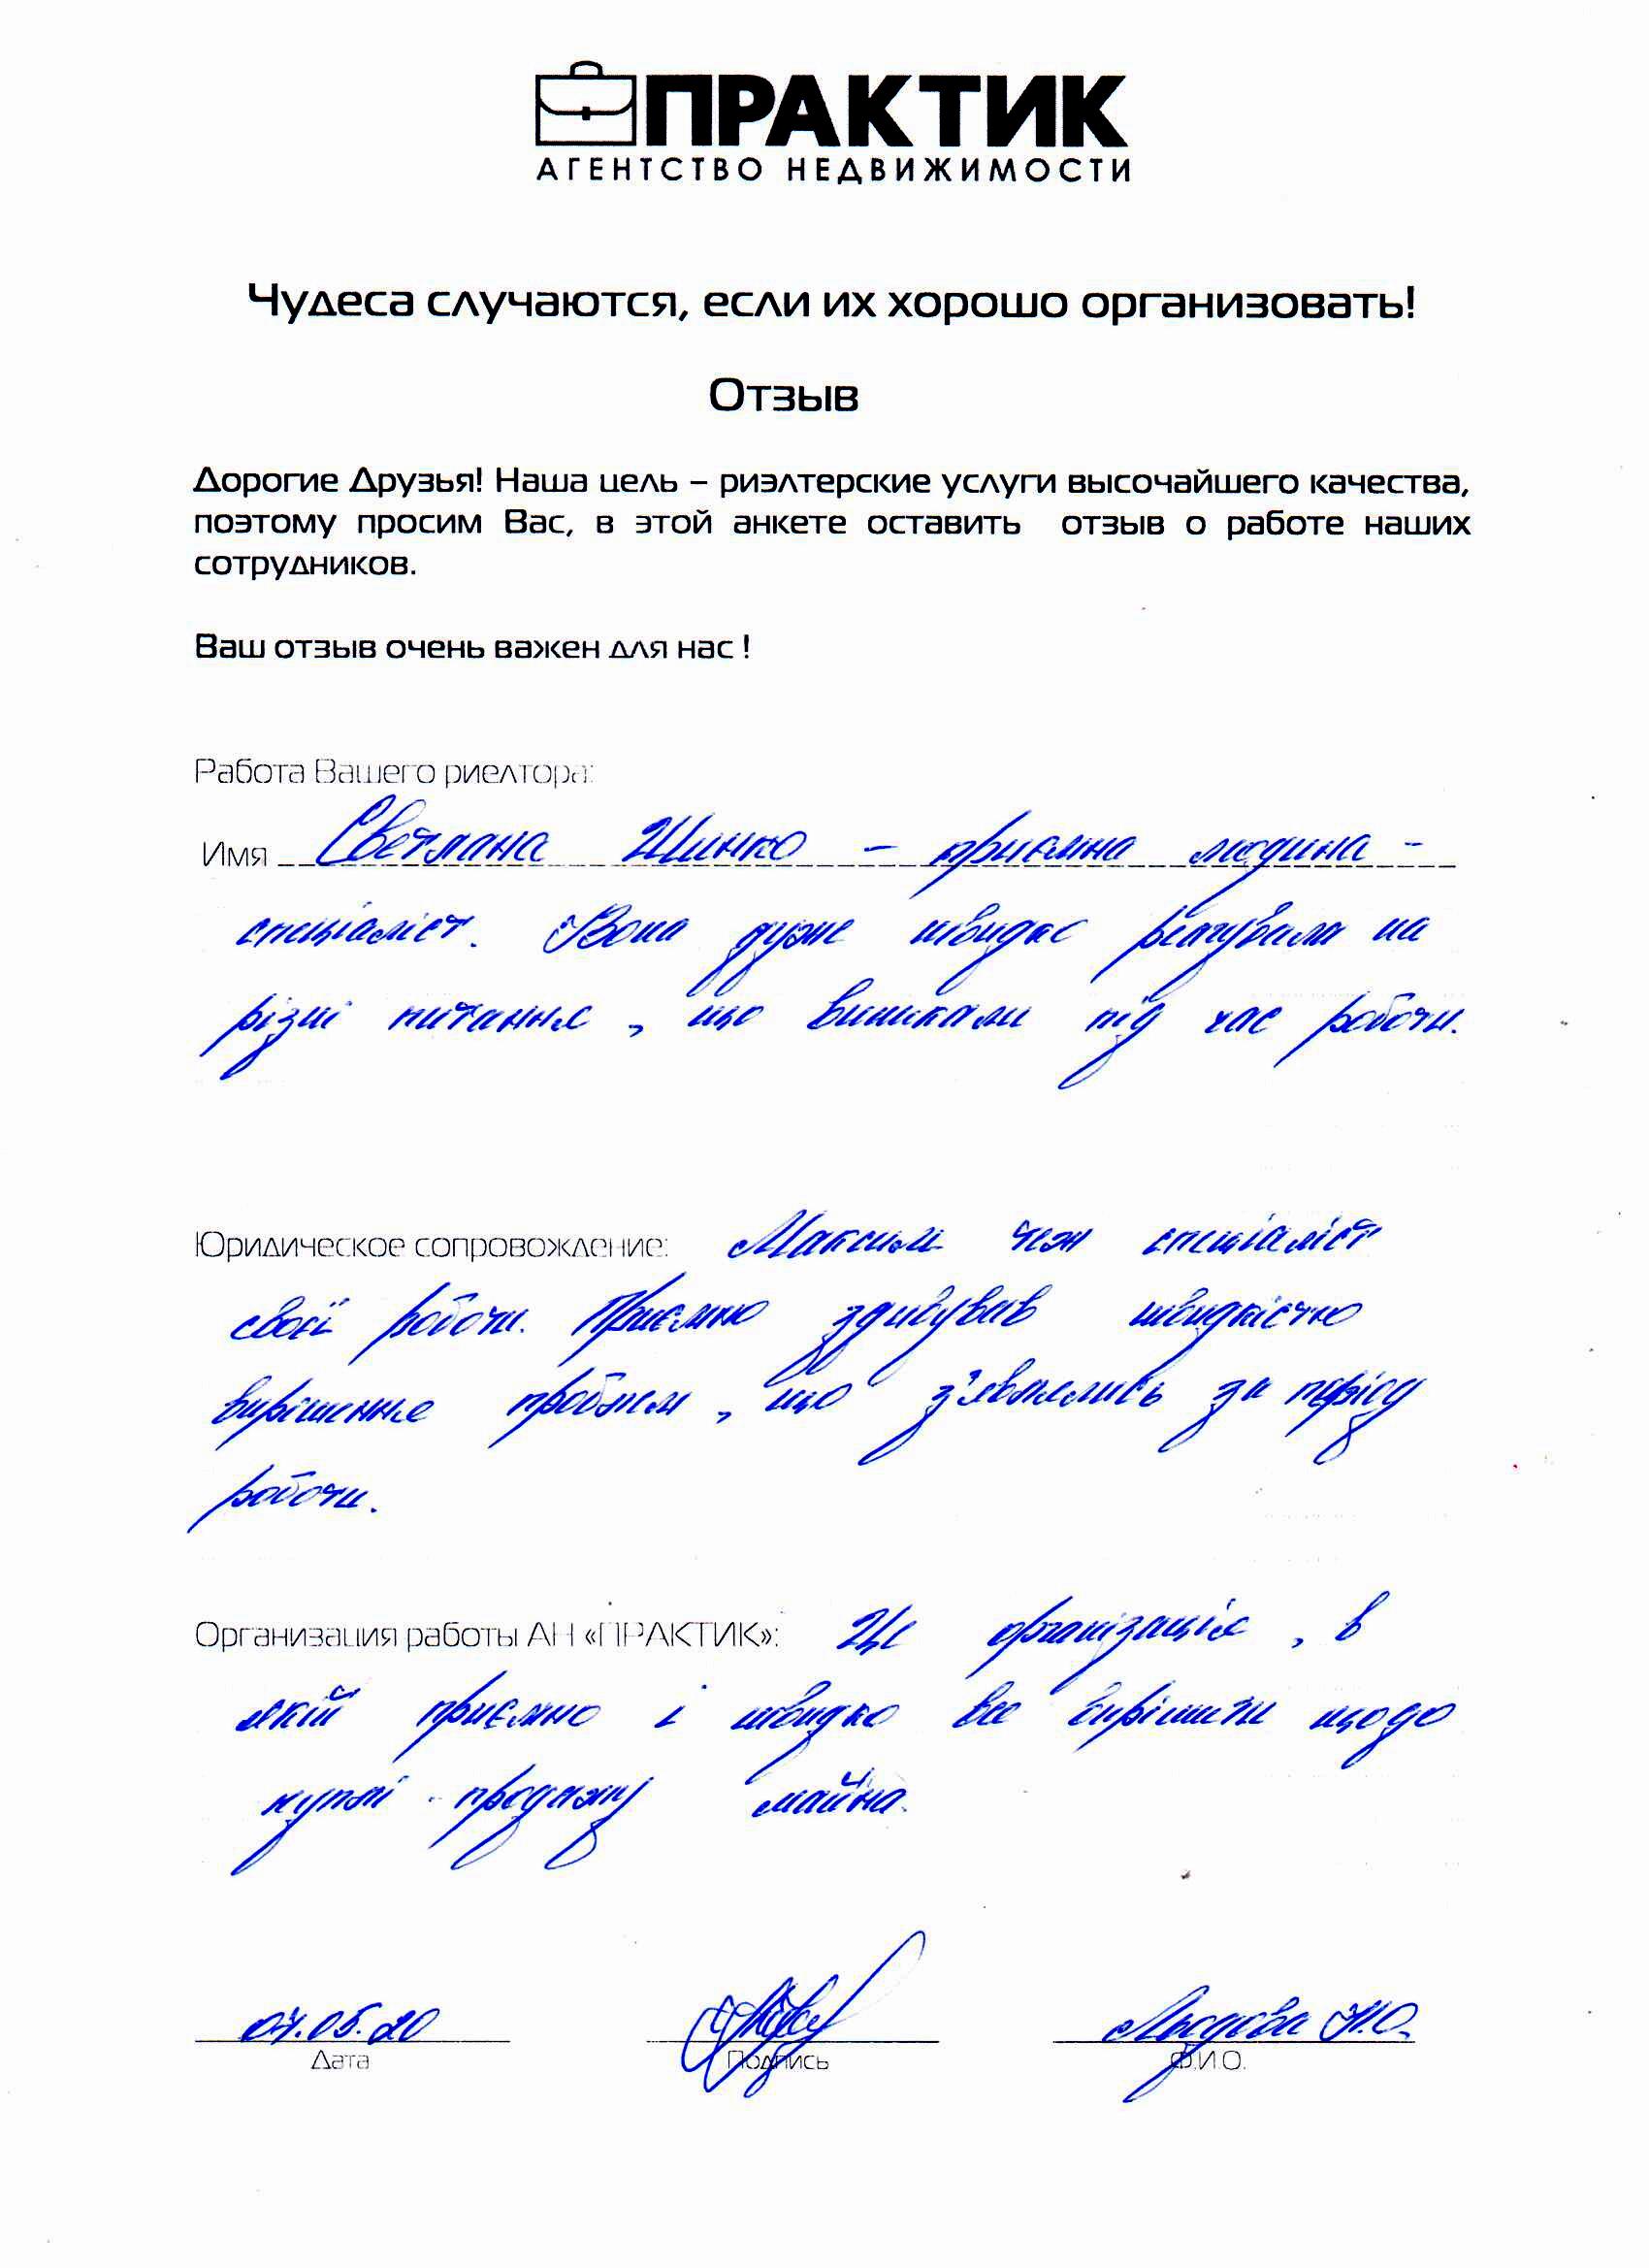 ПРАКТИК
АГЕНТСТВО НЕДВИЖИМОСТИ
Чудеса случаются, если их хорошо организовать!
Отзыв
Дорогие Друзья! Наша цель – риэлтерские услуги высочайшего качества,
поэтому просим Вас, в этой анкете оставить отзыв о работе наших
сотрудников.
Ваш отзыв очень важен для нас !
Работа Вашего риелтора:
Имя Светлана Шинко - приємна людина -
спеціаліст. Вона дуже швидко реагувала на
різні питання, що виникали під час роботи.
Юридическое сопровождение: Максим теж спеціаліст
своєї роботи. Приємно здивував швидкістю
вирішення проблем, що з'являлись за період
роботи.
Организация работы АН «ПРАКТИК»: Це організація, в
якій приємно і швидко все вирішити щодо
куплі - продажу майна.
04.05.20
Дата Подпись Ф.И.О.